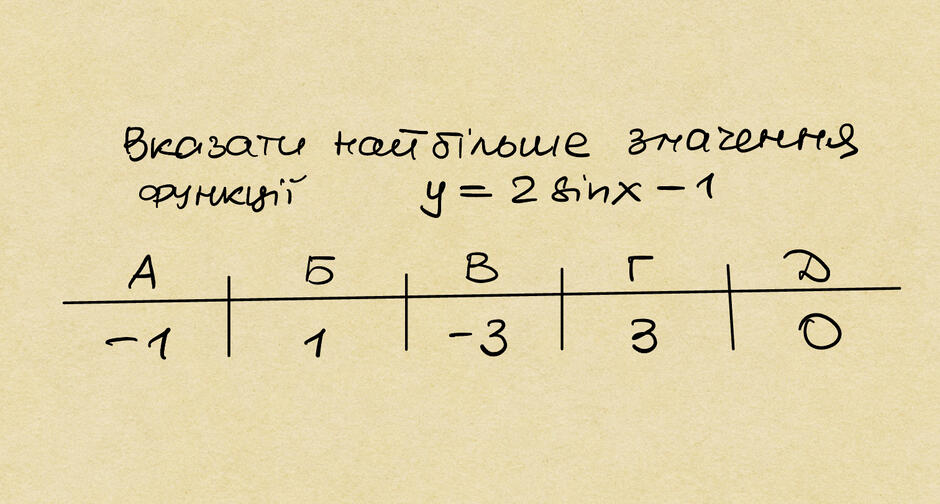 Вказати найбільше значення
функції y = 2 sinx - 1
А Б В Г Д
-1 1 -3 3 0